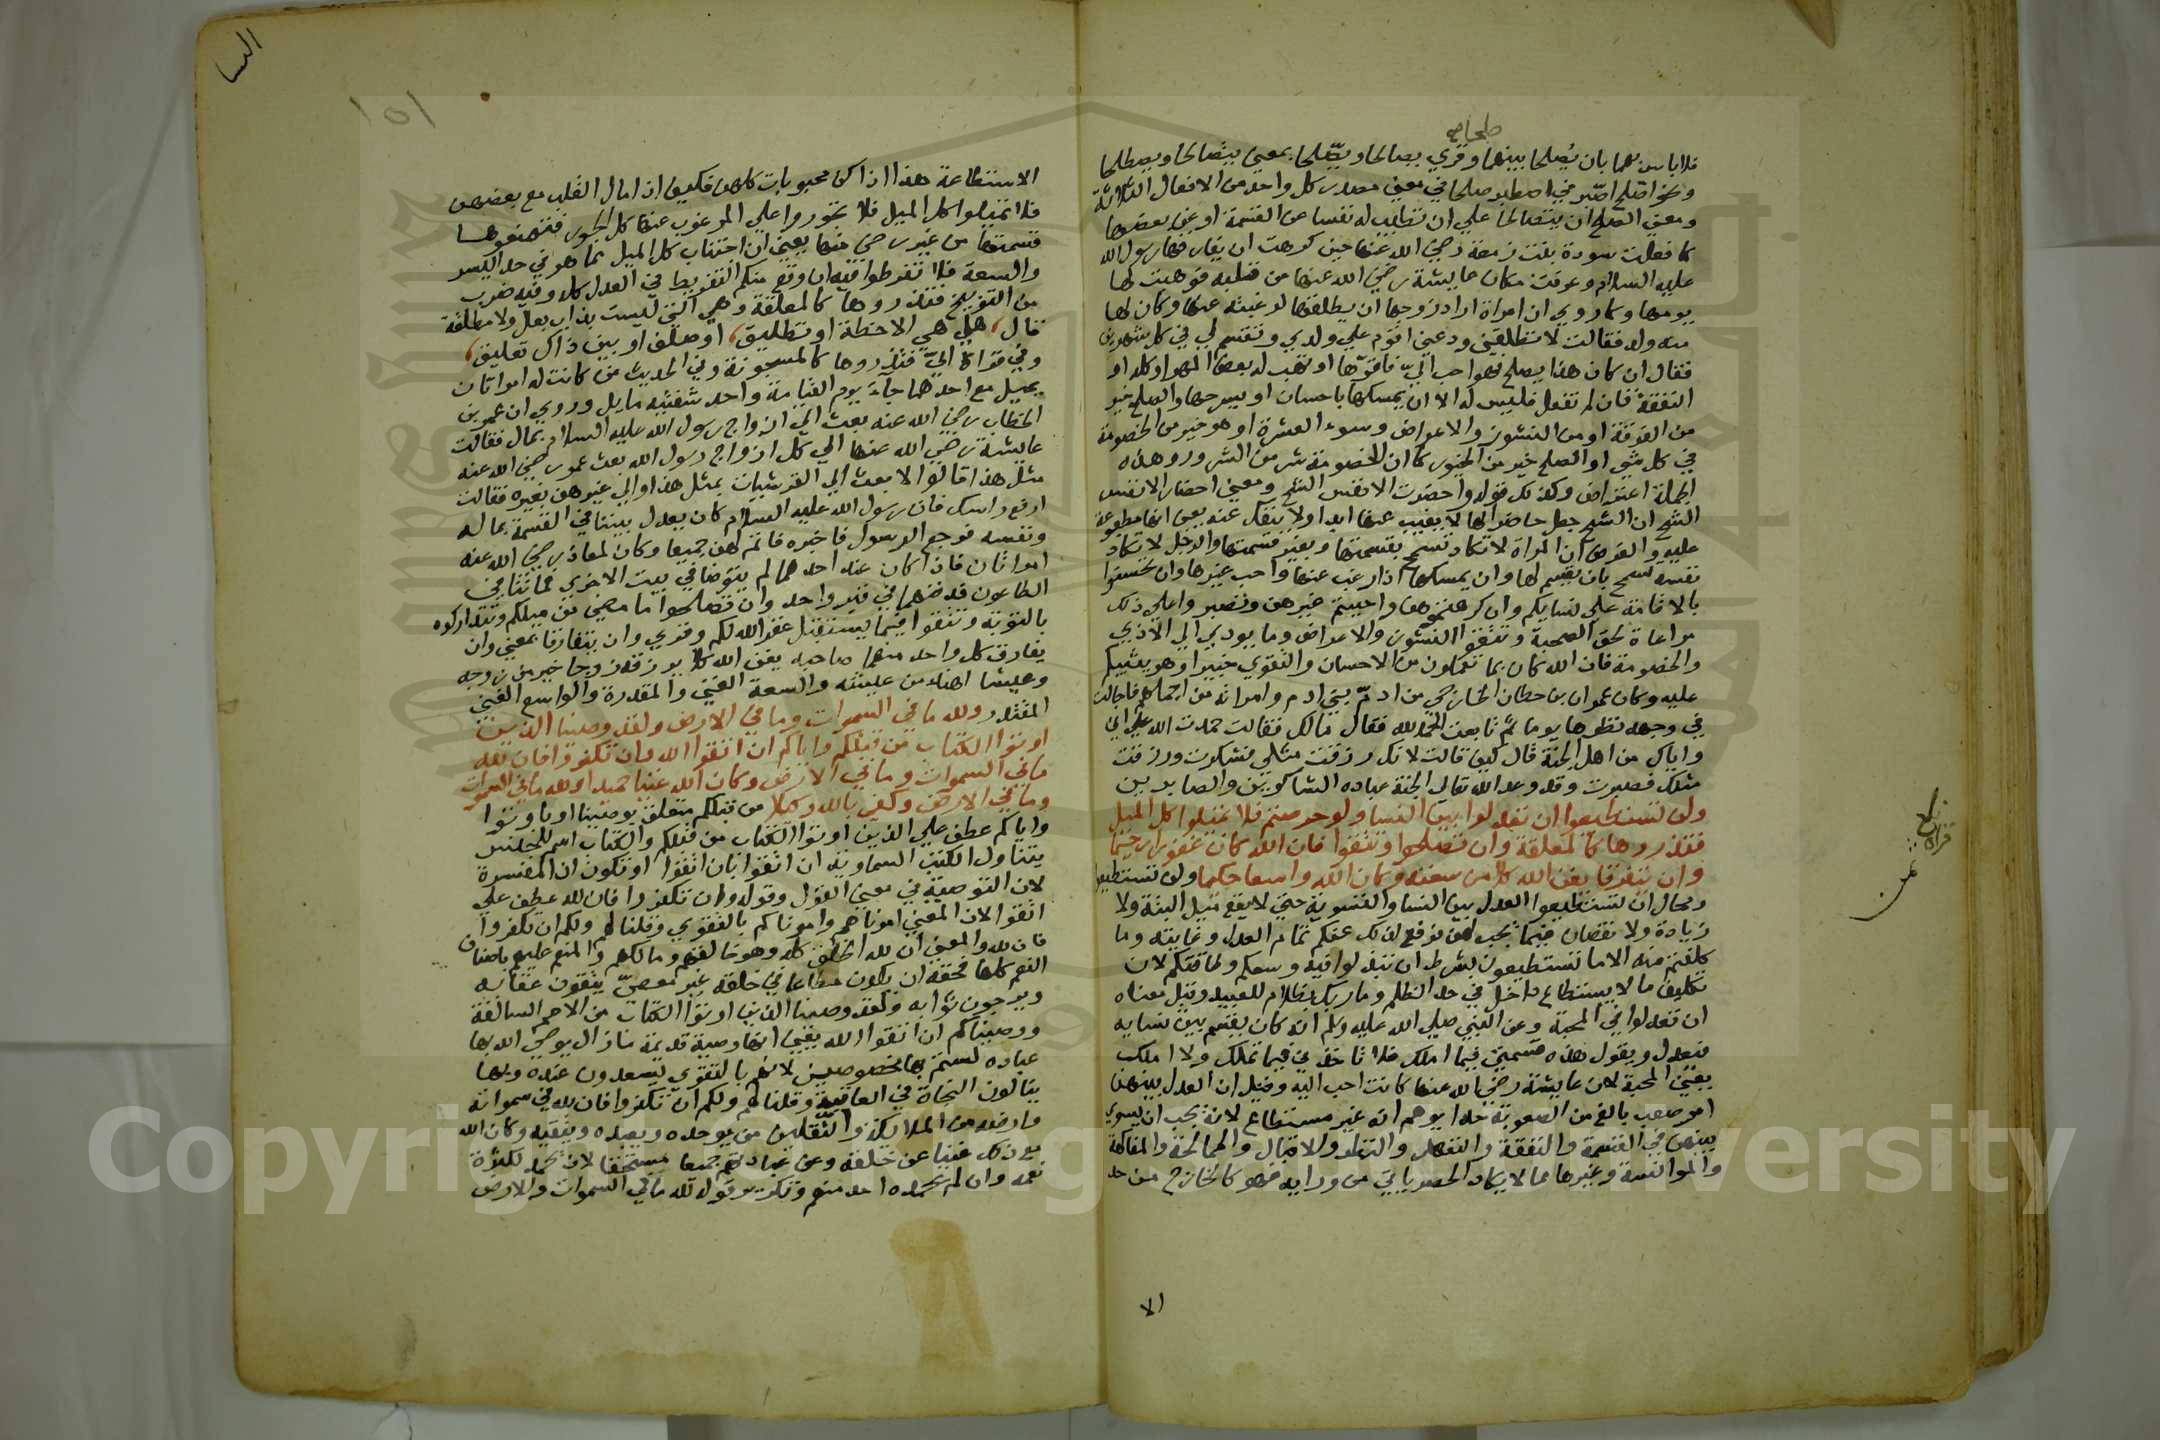 فلا باس بهما بان يصلحا بينهما وقري يصالحا ويصّلحا بمعنى يتصالحا ويصطلحا
ونحو اصّلح اصّبر في اصطبر صلحا في معنى مصدر كل واحد من الافعال الثلاثة
ومعنى الصلح ان يتصالحا علي ان تطيب له نفسا عن القسمة او عن بعضها
كما فعلت سودة بنت زمعة رضي الله عنها حين كرهت ان يفارقها رسول الله
عليه السلام وعرفت مكان عايشة رضي الله عنها من قلبه فوهبت لها
يومها وكما روي ان امراة اراد زوجها ان يطلقها لرغبته عنها وكان لها
منه ولد فقالت لا تطلقني ودعني اقوم علي ولدي وتقسم لي في كل شهرين
فقال ان كان هذا يصلح فهو احب اليّ فاقرّها او تهب له بعض المهر او كله او
النفقة فان لم تفعل فليس له الا ان يمسكها باحسان او يسرحها والصلح خير
من الفرقة او من النشوز والاعراض وسوء العشرة او هو خير من الخصومة
في كل شي او الصلح خير من الخيور كما ان الخصومة شر من الشرور وهذه
الجملة اعتراض وكذلك قوله واحضرت الانفس الشح ومعنى احضار الانفس
الشح ان الشح جعل حاضرا لها لا يغيب عنها ابدا ولا تنفك عنه يعني انها مطبوعة
عليه والغرض ان المراة لا تكاد تسمح بقسمتها وبغير قسمتها والرجل لا تكاد
نفسه تسمح بان يقسم لها وان يمسكها اذا رغب عنها واحب غيرها وان تحسنوا
بالاقامة علي نسايكم وان كرهتموهن واحببتم غيرهن وتصبروا علي ذلك
مراعاة لحق الصحبة وتتقوا النشوز والاعراض وما يودي الي الاذي
والخصومة فان الله كان بما تعملون من الاحسان والتقوي خبيرا وهو يثيبكم
عليه وكان عمران بن حطان الخارجي من ادمّ بني ادم وامراته من اجملهم فاجالت
في وجهه نظرها يوما ثم تابعت الحمد لله فقال مالك فقالت حمدت الله علي اني
واياك من اهل الجنة قال كيف قالت لانك رزقت مثلي فشكرت ورزقت
مثلك فصبرت وقد وعد الله تعالي الجنة عباده الشاكرين والصابرين
ولن تستطيعوا ان تعدلوا بين النسا ولو حرصتم فلا تميلوا كل الميل
فتذروها كالمعلقة وان تصلحوا وتتقوا فان الله كان غفورا رحيما
وان يتفرقا يغن الله كلا من سعته وكان الله واسعا حكيما ولن تستطيعوا
ومحال ان تستطيعوا العدل بين النسا والتسوية حتي لا يقع ميل البتة ولا
زيادة ولا نقصان فيما يجب لهن فرفع لذلك عنكم تمام العدل وغايته وما
كلفتم منه الا ما تستطيعون بشرط ان تبذلوا فيه وسعكم وطاقتكم لان
تكليف ما لا يستطاع داخل في حد الظلم وما ربك بظلام للعبيد وقيل معناه
ان تعدلوا في المحبة وعن النبي صلي الله عليه وسلم انه كان يقسم بين نسايه
فيعدل ويقول هذه قسمتي فيما املك فلا تاخذني فيما تملك ولا املك
يعني المحبة لان عايشة رضي الله عنها كانت احب اليه وقيل ان العدل بينهن
امر صعب بالغ من الصعوبة حدا يوهم انه غير مستطاع لانه يجب ان يسوي
بينهن في القسمة والنفقة والتعهد والنظر والاقبال والممالحة والمفاكهة
والموانسة وغيرها مما لا يكاد الحصر ياتي من ورايه فهو كالخارج من حد
الا
النسا
١٥١
الاستطاعة هذا اذا كن محبوبات كلهن فكيف اذا مال القلب مع بعضهن
فلا تميلوا كل الميل فلا تجوروا علي المرغوب عنها كل الجور فتمنعوها
قسمتها من غير رضي منها يعني ان اجتناب كل الميل مما هو في حد اليسر
والسعة فلا تفرطوا فيه ان وقع منكم التفريط في العدل كله وفيه ضرب
من التوبيخ فتذروها كالمعلقة وهي التي ليست بذات بعل ولا مطلقة
قال هل هي الا حظة او تطليق او صلف او بين ذاك تعليق
وفي قراة ابيّ فتذروها كالمسجونة وفي الحديث من كانت له امراتان
يميل مع احدهما جاء يوم القيامة واحد شقيه مايل وروي ان عمر بن
الخطاب رضي الله عنه بعث الي ازواج رسول الله عليه السلام بمال فقالت
عايشة رضي الله عنها الي كل ازواج رسول الله بعث عمر رضي الله عنه
مثل هذا قالوا لا بعث الي القرشيات بمثل هذا والي غيرهن بغيره فقالت
ارفع راسك فان رسول الله عليه السلام كان يعدل بيننا في القسمة بماله
ونفسه فرجع الرسول فاخبره فاتم لهن جميعا وكان لمعاذ رضي الله عنه
امراتان فاذا كان عند احدهما لم يتوضا في بيت الاخري فماتتا في
الطاعون فدفنهما في قبر واحد وان تصلحوا ما مضي من ميلكم وتتداركوه
بالتوبة وتتقوا فيما يستقبل غفر الله لكم وقري وان يتفارقا بمعني وان
يفارق كل واحد منهما صاحبه يغن الله كلا يرزقه زوجا خيرا من زوجه
وعيشا اهنا من عيشه والسعة الغني والمقدرة والواسع الغني
المقتدر ولله ما في السموات وما في الارض ولقد وصينا الذين
اوتوا الكتاب من قبلكم واياكم ان اتقوا الله وان تكفروا فان لله
ما في السموات وما في الارض وكان الله غنيا حميدا ولله ما في السموات
وما في الارض وكفي بالله وكيلا من قبلكم متعلق بوصينا او باوتوا
واياكم عطف علي الذين اوتوا الكتاب من قبلكم والكتاب اسم للجنس
يتناول الكتب السماوية ان اتقوا بان اتقوا او تكون ان المفسرة
لان التوصية في معني القول وقوله وان تكفروا فان لله عطف علي
اتقوا لان المعني امرناهم وامرناكم بالتقوي وقلنا لهم ولكم ان تكفروا
فان لله والمعني ان لله الخلق كله وهو خالقهم ومالكهم والمنعم عليهم باصناف
النعم كلها فحقه ان يكون مطاعا في خلقه غير معصيّ يتقون عقابه
ويرجون ثوابه ولقد وصينا الذين اوتوا الكتاب من الامم السالفة
ووصيناكم ان اتقوا الله يعني انها وصية قديمة ما زال يوصي الله بها
عباده لستم بها مخصوصين لانهم بالتقوي يسعدون عنده وبها
ينالون النجاة في العاقبة وقلنا لهم ولكم ان تكفروا فان لله في سمواته
وارضه من الملايكة والثقلين من يوحده ويعبده ويتقيه وكان الله
مع ذلك غنيا عن خلقه وعن عبادتهم جميعا مستحقا لان يحمد لكثرة
نعمه وان لم يحمده احد منهم وتكرير قوله لله ما في السموات والارض
Copyri g iversity